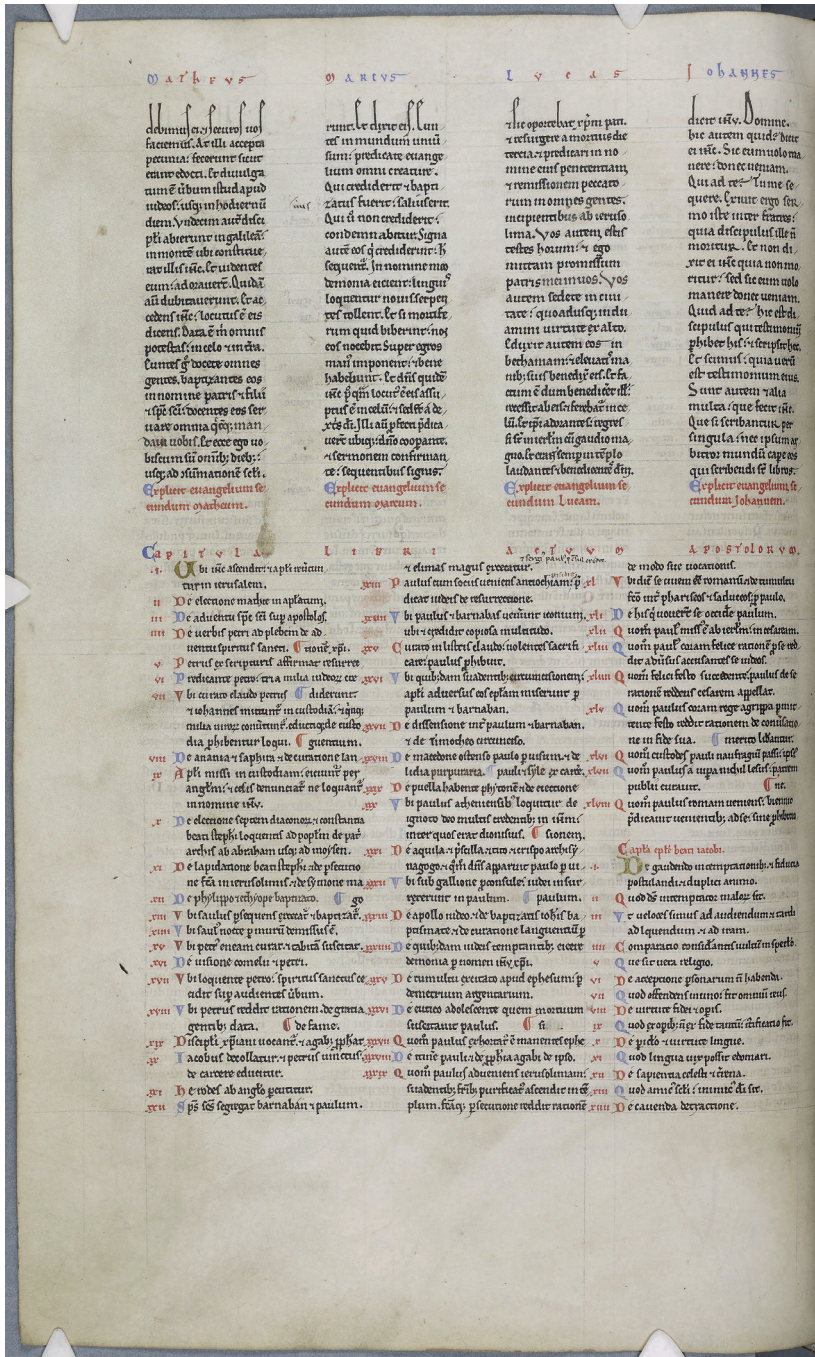 MATHEUS
debimus ei. ⁊ securos uos
faciemus. At illi accepta
pecunia: fecerunt sicut
erant edocti. Et diuulga
tum ē ūbum istud apud
iudeos. usq; in hodiernū
diem. Vndecim autē disci
puli abierunt in galileā:
in montē ubi constitue
rat illis ih̄c. Et uidentes
eum: adorauert̄. Quidā
aū dubitauerunt. Et ac
cedens ih̄c: locutus ē eis
dicens. Data ē m̄ omnis
potestas: in celo ⁊ in tr̄a.
Euntes g̊ docete omnes
gentes. baptizantes eos
in nomine patris ⁊ filii
⁊ sp̄s sc̄i: docentes eos ser
uare omnia q̄cq; man
daui uobis. Et ecce ego uo
biscum sū omīb; dieb;:
usq; ad ↄsūmationē sc̄li.
Explicit euangelium se
cundum Matheum.
MARCUS
runt. Et dixit eis. Eun
tes in mundum uniūsum:
predicate euange
lium omni creature.
Qui crediderit ⁊ bapti
zatus fuerit: saluus erit.
Qui ū non crediderit:
condemnabitur. Signa
autē eos q̄ crediderint: h̄
sequent̄. In nomine meo
demonia eicient: linguis
loquentur nouis: serpen
tes tollent. Et si mortife
rum quid biberint: nō
eos nocebit. Super egros
manus imponent: ⁊ bene
habebunt. Et dn̄s quidē
ih̄c pq̄m locutus ē eis assū
ptus ē in celū: ⁊ sedet a de
xt̄s dī. Illi aū pfecti p̄dica
uert̄ ubiq; dn̄o coopante.
⁊ sermonem confirman
te: sequentibus signis.
Explicit euangelium se
cundum Marcum.
LUCAS
⁊ sic oportebat xp̄m pati.
⁊ resurgere a mortuis die
tercia. ⁊ predicari in no
mine eius penitentiam
⁊ remissionem peccato
rum in omnes gentes.
incipientibus ab ieroso
lima. Vos autem estis
testes horum: ⁊ ego
mittam promissum
patris mei in uos. Vos
autem sedete in ciui
tate: quoadusq; indu
amini uirtute ex alto.
Eduxit autem eos in
bethaniam: ⁊ eleuatis ma
nib; suis benedix̄ eis. Et fa
ctum ē dum benediceret ill':
recessit ab eis: ⁊ ferebat̄ in ce
lū. Et ipi adorantes: regres
si st̄ in ierl̄m cū gaudio ma
gno. Et erant semp in tēplo
laudantes ⁊ benedicentes dm̄.
Explicit euangelium se
cundum Lucam.
IOHANNES
dicit ih̄u. Domine.
hic autem quid? Dicit
ei ih̄c. Sic eum uolo ma
nere: donec ueniam.
Qui ad te? Tu me se
quere. Exiuit ergo ser
mo iste inter fratres:
quia discipulus ille n̄
moritur. Et non di
xit ei ih̄c quia non mo
ritur: sed sic eum uolo
manere donec ueniam.
Quid ad te? hic est di
scipulus qui testimoniū
phibet his: ⁊ scripsit hec.
Et scimus: quia uerū
est testimonium eius.
Sunt autem ⁊ alia
multa: que fecit ih̄c.
Que si scribantur per
singula: nec ipsum ar
bitror mundū capere eos
qui scribendi st̄ libros.
Explicit euangelium se
cundum Iohannem.
CAPITULA LIBRI ACTUUM APOSTOLORUM.
.i. Vbi ih̄c ascendit: ⁊ apli reūtun
tur in ierusalem.
ii De electione mathie in aplatum.
iii De aduentu sp̄s sc̄i sup apostolos.
iiii De uerbis petri ad plebem de ad
uentu spiritus sancti. ¶ tione xp̄i.
v Petrus ex scripturis affirmat resurrec
vi Predicante petro: tria milia iudeor̄ cre
vii Vbi curato claudo petrus ¶ diderunt
⁊ iohannes mittunt̄ in custodiā: ⁊ qinq;
milia uiror̄ conūtunt̄. educti q; de custo
dia phibentur loqui. ¶ guentium.
viii De anania ⁊ saphira ⁊ de curatione lan
ix Apli missi in custodiam: eiciunt̄ per
anglm: ⁊ celis denunciat̄ ne loquant̄
in nomine ih̄u.
x De electione septem diaconor̄ ⁊ constantia
beati steph̄i loquentis ad poplm de pat̄
archis ab abraham usq; ad moysen.
xi De lapidatione beati steph̄i: ⁊ de psecutio
ne fc̄a in ierosolimis: ⁊ de symone ma
xii De phylippo ⁊ ethyope baptizato. ¶ go
xiii Vbi saulus psequens excecat̄ ⁊ baptizat̄.
xiiii Vbi saul' nocte p murū demissus ē.
xv Vbi petr' eneam curat ⁊ tabitā suscitat.
xvi De uisione cornelii ⁊ petri.
xvii Vbi loquente petro: spiritus sanctus ce
cidit sup audientes ūbum.
xviii Vbi petrus reddit rationem de gratia
gentib; data. ¶ de fame.
xix Discipli xp̄iani uocant̄: ⁊ agab; pphat
xx Iacobus decollatur: ⁊ petrus uinctus
de carcere educitur.
xxi Herodes ab anglo pcutitur.
xxii Sp̄s sc̄s segregat barnaban ⁊ paulum.
⁊ elimas magus excecatur.
xxiii Paulus cum sociis ueniens antiochiam: p̄
dicat iudeis de resurrectione.
xxiiii Vbi paulus ⁊ barnabas ueniunt iconium.
ubi ⁊ credidit copiosa multitudo.
xxv Curato in listris claudo: uolentes sacrifi
care: paulus phibuit.
xxvi Vbi quib;dam suadentib; circumcisionem:
apli aduersus eos eplam miserunt p
paulum ⁊ barnaban.
xxvii De dissensione int̄ paulum ⁊ barnaban.
⁊ de timotheo circunciso.
xxviii De macedone ostenso paulo p uisum: ⁊ de
lidia purpuraria. ¶ pauli ⁊ syle ex carcē.
xxix De puella habente phitonē: ⁊ de eiectione
xxx Vbi paulus atheniensib' loquitur de
ignoto deo multis credentib; in ih̄m:
inter quos erat dionisius. ¶ sionem.
xxxi De aquila ⁊ priscilla. ⁊ tito. ⁊ crispo archisy
nagogo: ⁊ qm̄ dn̄s apparuit paulo p ui
xxxii Vbi sub gallione pconsule: iudei insur
rexerunt in paulum. ¶ paulum.
xxxiii De apollo iudeo: ⁊ de baptizatis ioh̄is ba
ptismate: ⁊ de curatione languentiū p
xxxiiii De quib;dam iudeis temptantib; eicere
demonia p nomen ih̄u xp̄i.
xxxv De tumultu excitato apud ephesum: p
demetrium argentarium.
xxxvi De eutico adolescente quem mortuum
suscitauit paulus. ¶ si
xxxvii Quom̄ paulus exhortat̄ ē manentes ephe
xxxviii De itinē pauli: ⁊ de pphia agabi de ipso.
xxxix Quom̄ paulus adueniens ierusolimam:
suadentib; frīb; purificat̄ ascendit in tē
plum. fc̄aq; psecutione reddit rationē
de modo sue uocationis.
xl Vbi dix̄ se ciuem eē romanū: ⁊ de tumultu
fc̄o int̄ phariseos ⁊ saduceos p paulo.
xli De his q' uouert̄ se occidē paulum.
xlii Quom̄ paul' miss' ē ab ierl̄m in cesaream.
xliii Quom̄ paul' coram felice rationē p se red
dit aduīsus accusantes se iudeos.
xliiii Quom̄ felici festo succedente: paulus de se
rationē reddens cesarem appellat.
xlv Quom̄ paulus coram rege agrippa pmit
tente festo reddit rationem de conūsatio
ne in fide sua. ¶ merito libantur.
xlvi Quom̄ custodes pauli naufragiū passi: ipsi'
xlvii Quom̄ paulus a uipa nichil lesus: patrem
publii curauit. ¶ ne.
xlviii Quom̄ paulus romam ueniens: biennio
p̄dicauit uenientib; ad se: sine phibitio
Capl̄a epl̄e beati iacobi.
.i. De gaudendo in temptationib; ⁊ fiducia
postulandi: ⁊ duplici animo.
ii Quod ds̄ intemptator malor̄ sit.
iii Vt ueloces simus ad audiendum ⁊ tardi
ad lquendum ⁊ ad iram.
iiii Comparatio considantis uultum in spclo.
v Que sit uera religio.
vi De acceptione psonarum n̄ habenda.
vii Quod offendens in uno: fit omniū reus.
viii De uirtute fidei ⁊ opis.
ix Quod ex opib; n̄ ex fide tantū: iustificatio fit.
x De piclo ⁊ uirtute lingue.
xi Quod lingua uix possit edomari.
xii De sapientia celesti ⁊ t̄rena.
xiii Quod amic' sc̄li: inimic' dī sit.
xiiii De cauenda detractione.